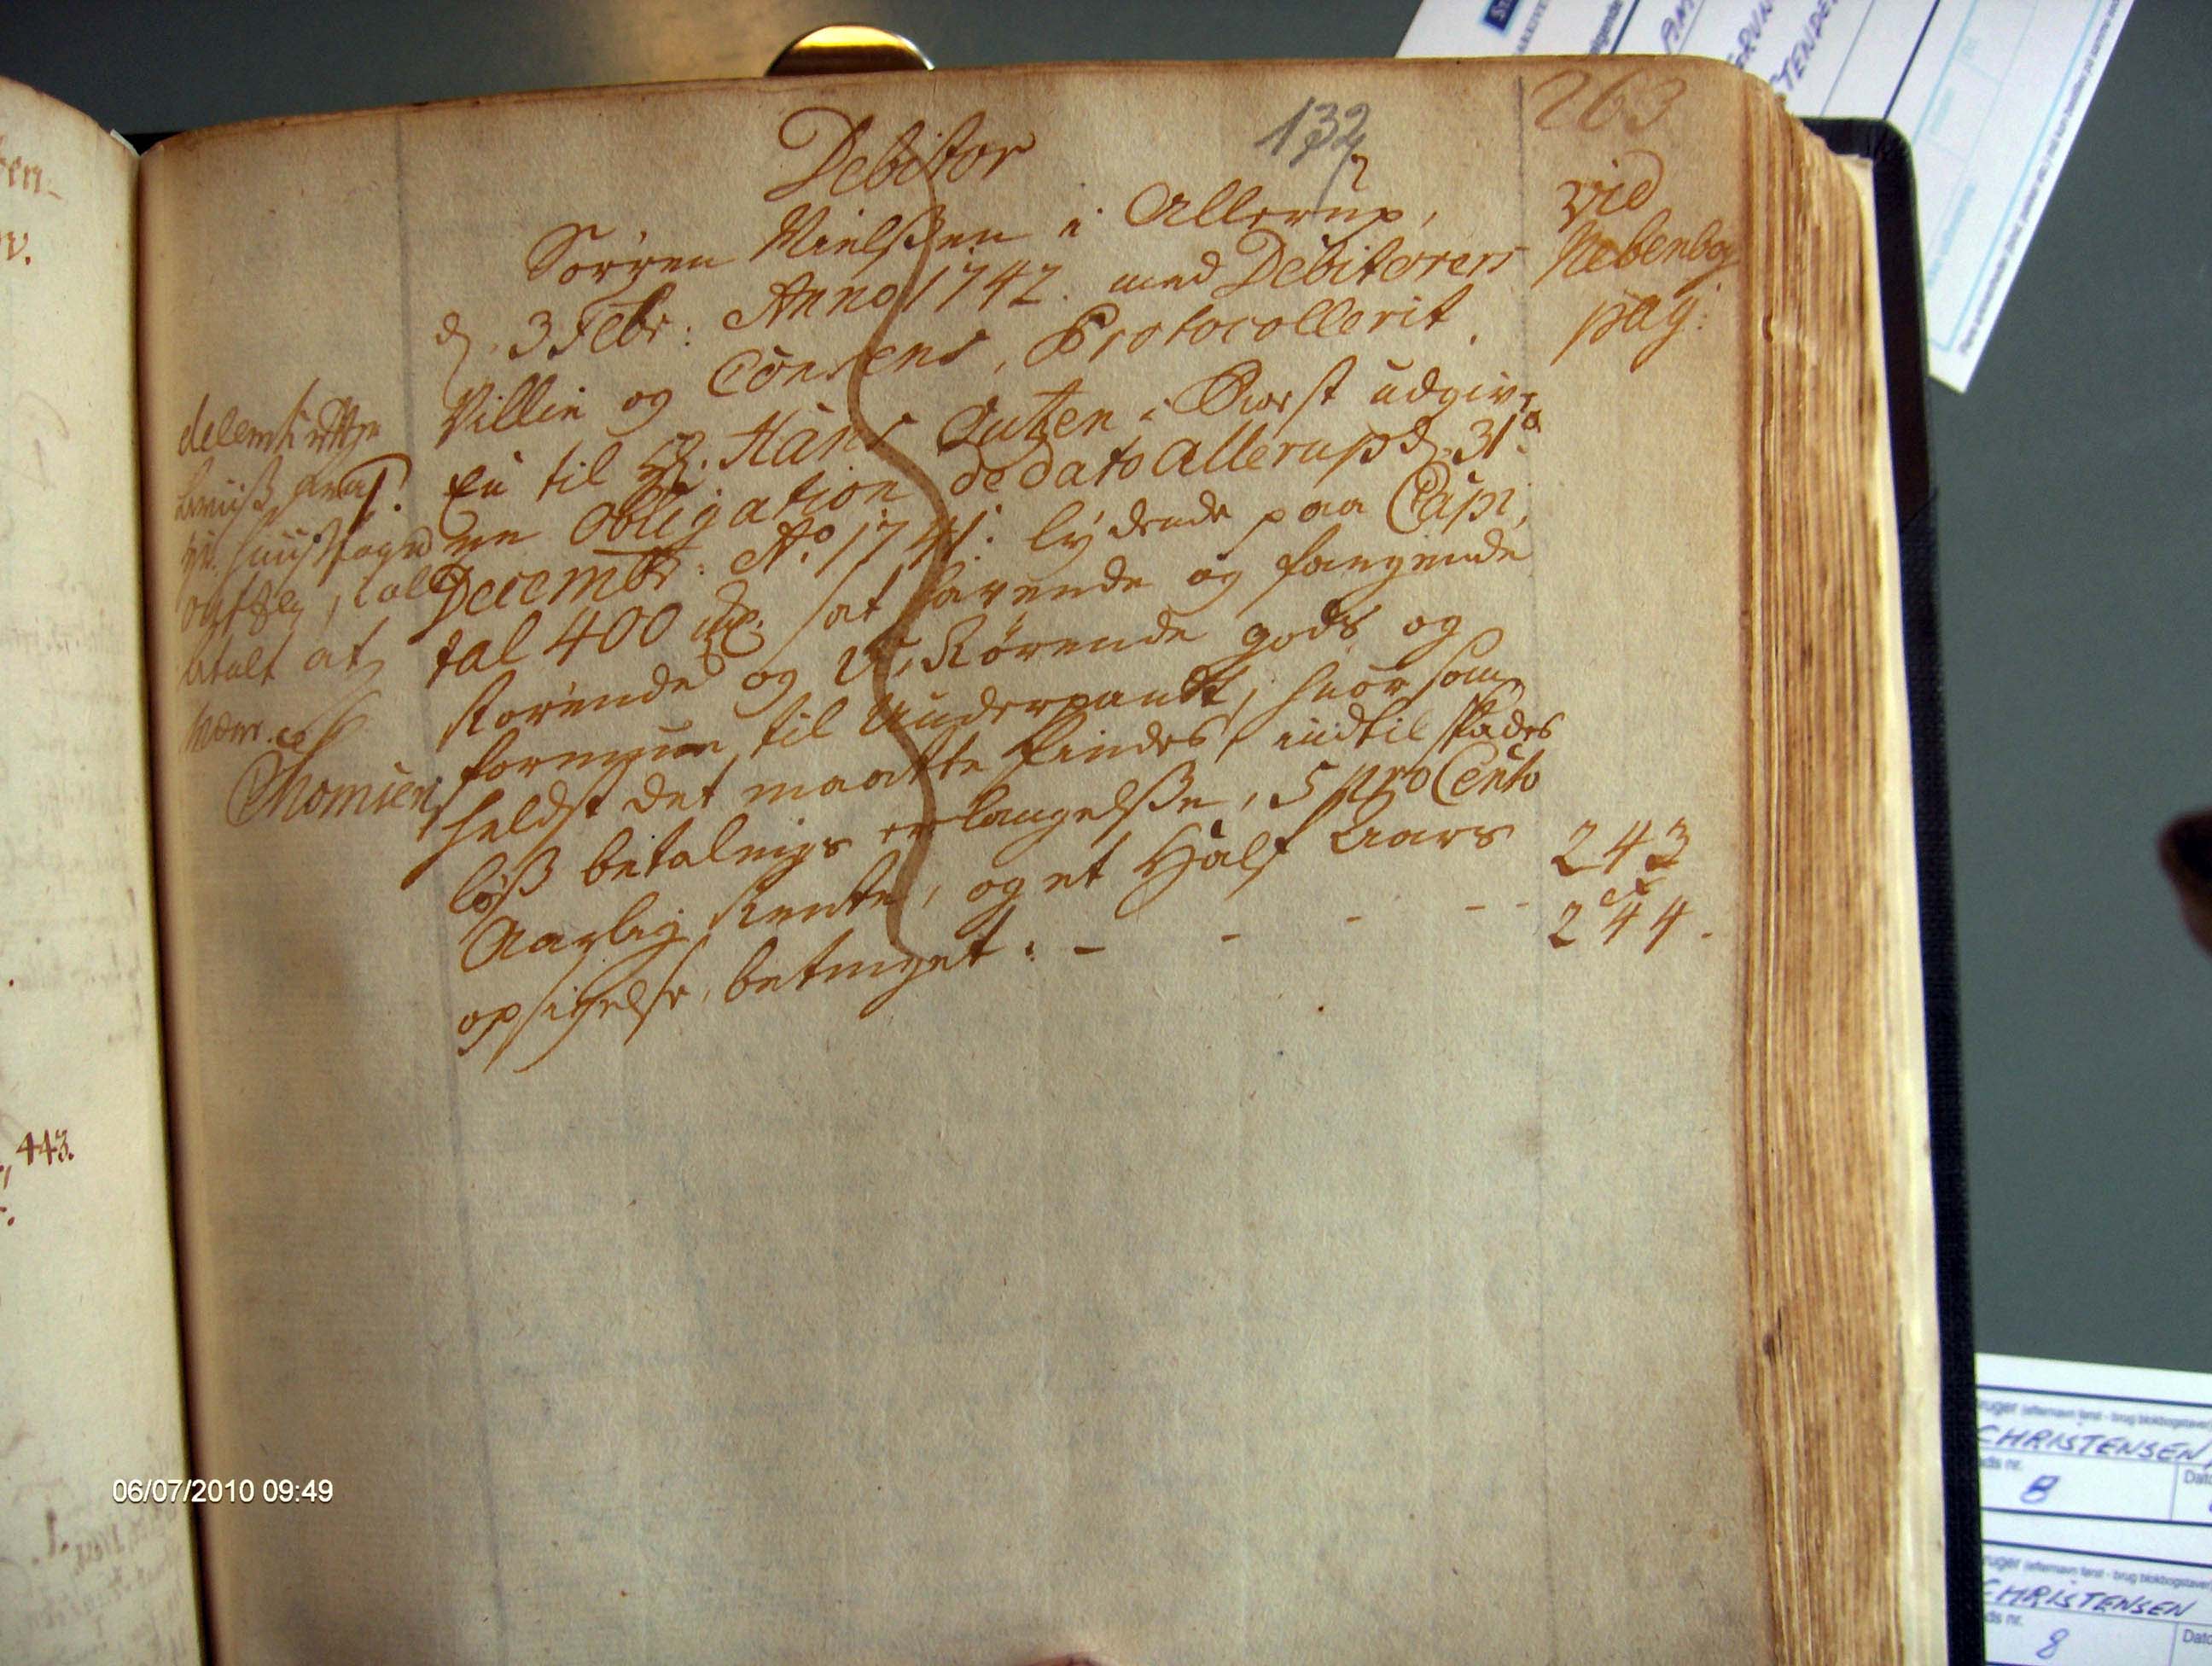 263
132
Debitor
vid
Nebenbog
pag:
Sörren Nielßen i Allerup,
d. 3 Febr: Anno 1742. med Debitorens
Villie og Consens, Protocollerit
En til Hr. Hans Outzen i Burst udgiv,
en Obligation de dato Allerup d. 31te
Decembr: Ao. 1741. lydende paa Capi,
tal 400 Rdl. sat havende og faaende
rörende og U,Rörende gods og
formue til Underpandt, hvor som
heldst det maatte findes, indtil skades
löß betalnigs erlangelße, 5 pro Cento
Aarlig Rente, og et Half Aars
opsigelse, betinget. - - - - -
243
et
244.
delemt
betalt at
Thomsen
443.
06/07/2010 09:49
CHRISTENSEN
8
CHRISTENSEN
8